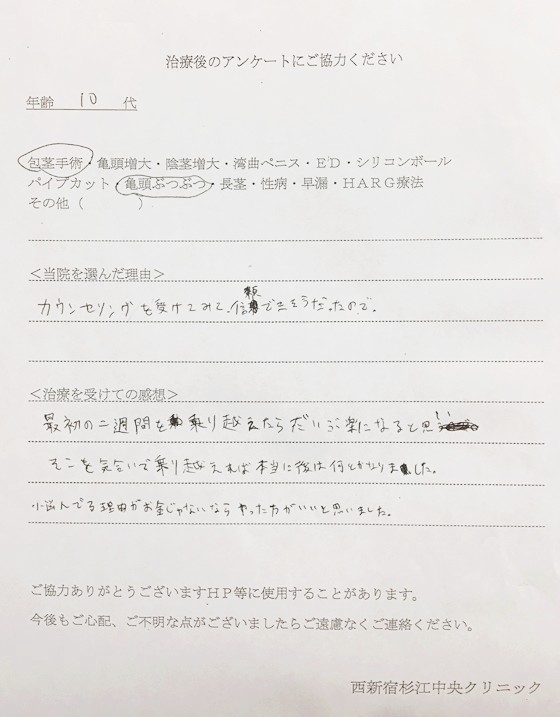 治療後のアンケートにご協力ください
年齢 10 代
包茎手術・亀頭増大・陰茎増大・湾曲ペニス・ED・シリコンボール
パイプカット・亀頭ぶつぶつ・長茎・性病・早漏・HARG療法
その他（ ）
＜当院を選んだ理由＞
カウンセリングを受けてみて、信頼できそうだったので。
＜治療を受けての感想＞
最初の二週間を乗り越えたらだいぶ楽になると思い
そこを気合いで乗り越えれば本当に後は何とかなりました。
悩んでる理由がお金じゃないならやった方がいいと思いました。
ご協力ありがとうございますHP等に使用することがあります。
今後もご心配、ご不明な点がございましたらご遠慮なくご連絡ください。
西新宿杉江中央クリニック